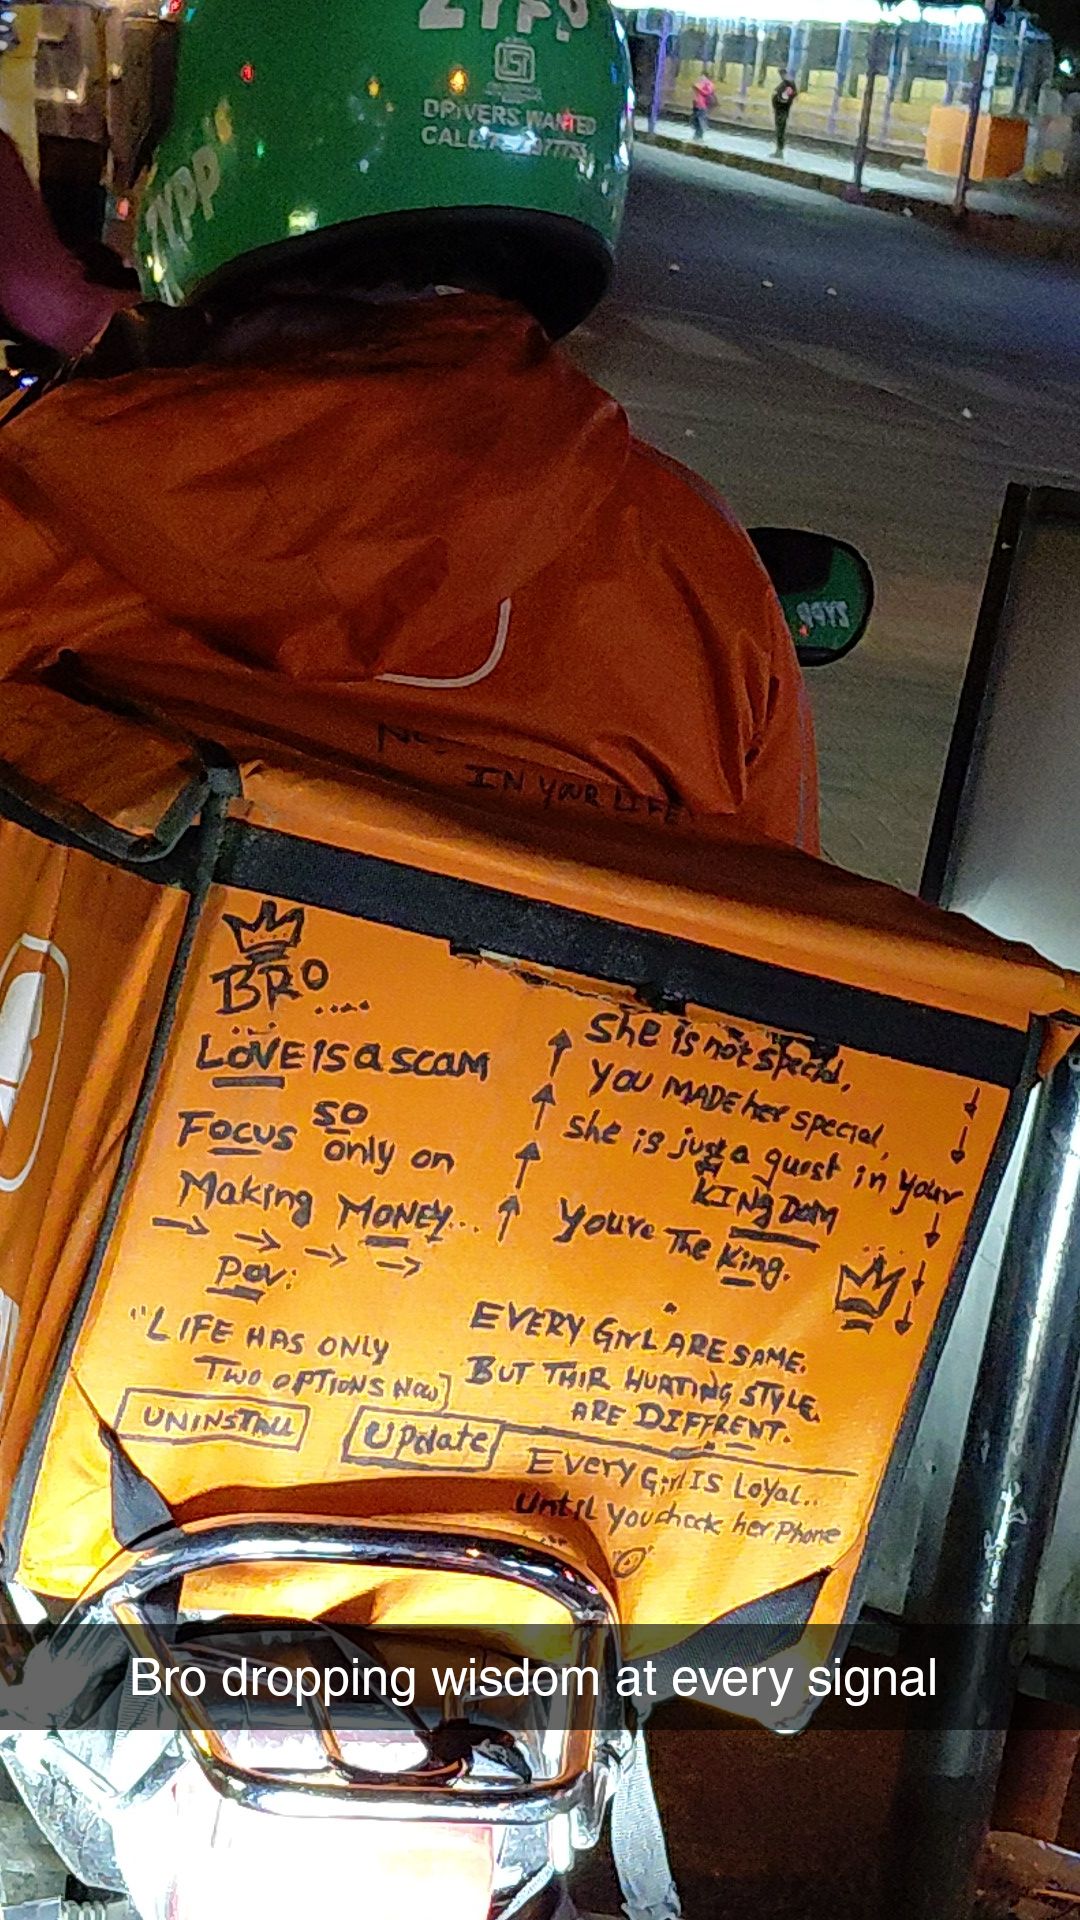 ZYPP
DRIVERS WANTED
CALL
ZYPP
ZYPP
IN YOUR LIFE
BRO....
LOVE IS a scam
so
Focus only on
Making MONEY...
Pov:
"LIFE HAS ONLY
TWO OPTIONS NOW]
UNINSTALL
UPdate
She is not special.
YOU MADE her special,
she is just a guest in your
KINGDOM
Youre The King.
EVERY GirL ARE SAME.
BUT THIR HURTING STYLE.
ARE DIFFRENT.
Every Girl IS LOYaL..
Until You check her Phone
Bro dropping wisdom at every signal